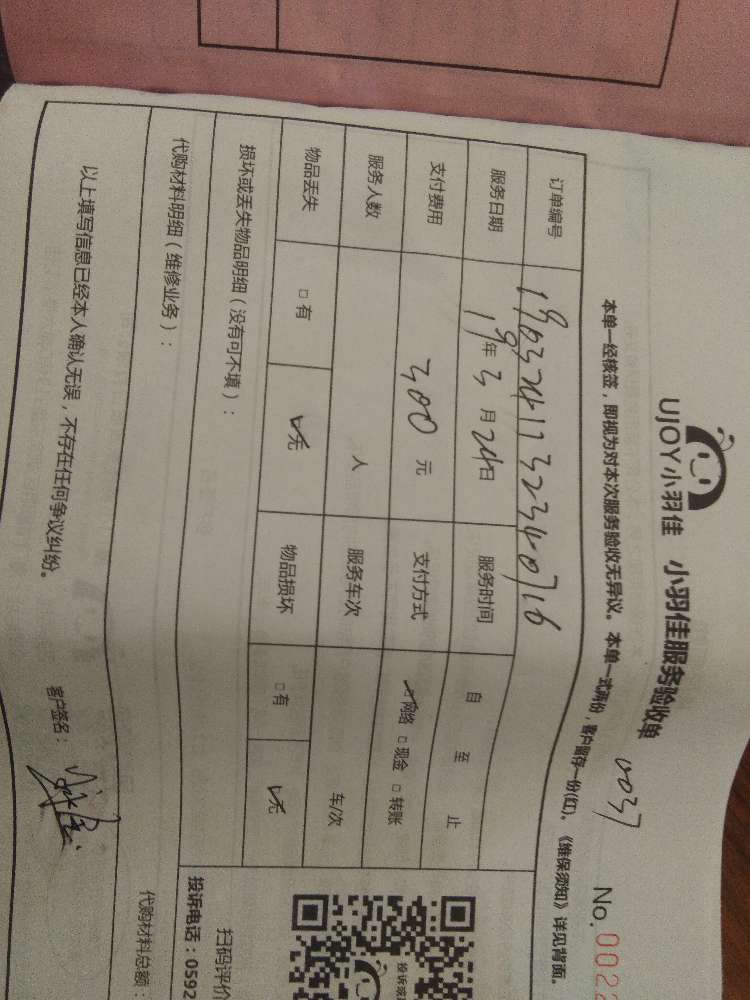 UJOY小羽佳 小羽佳服务验收单 0037 No.0022
本单一经核签，即视为对本次服务验收无异议。本单一式两份，客户留存一份(红)。《维保须知》详见背面。
订单编号 1903241732340716
服务日期 19年3月24日 服务时间 自 至 止
支付费用 300元 支付方式 ☑网络 □现金 □转账
服务人数 人 服务车次 车/次
物品丢失 □有 ☑无 物品损坏 □有 ☑无
损坏或丢失物品明细（没有可不填）：
代购材料明细（维修业务）：
代购材料总额：
以上填写信息已经本人确认无误，不存在任何争议纠纷。
客户签名：
扫码评价
投诉电话：0592